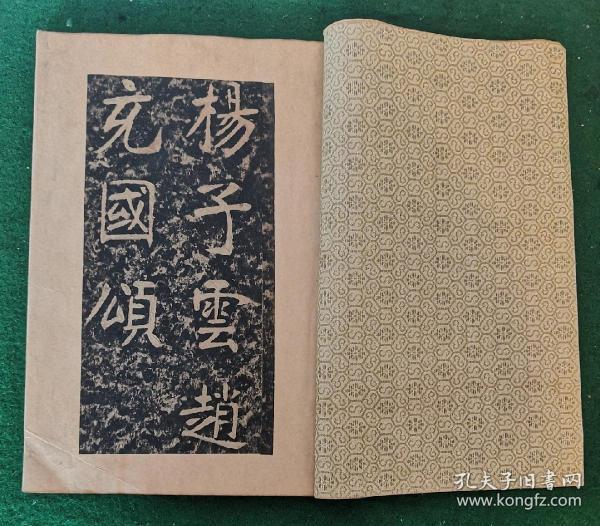 楊子雲趙
充國頌
孔夫子旧书网
www.kongfz.com